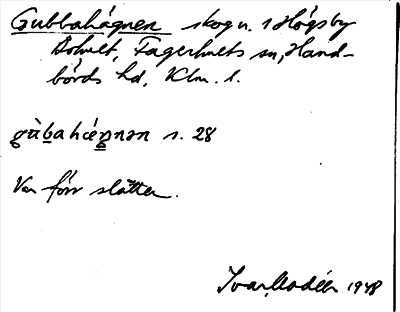 Gubbahägnen skog n. i Högsby
Bohult, Fagerhults sn, Hand-
börds hd, Klm. l.
gùbahæ̀gnən s. 28
Var förr slåtter.
Ivar Modéer 1948